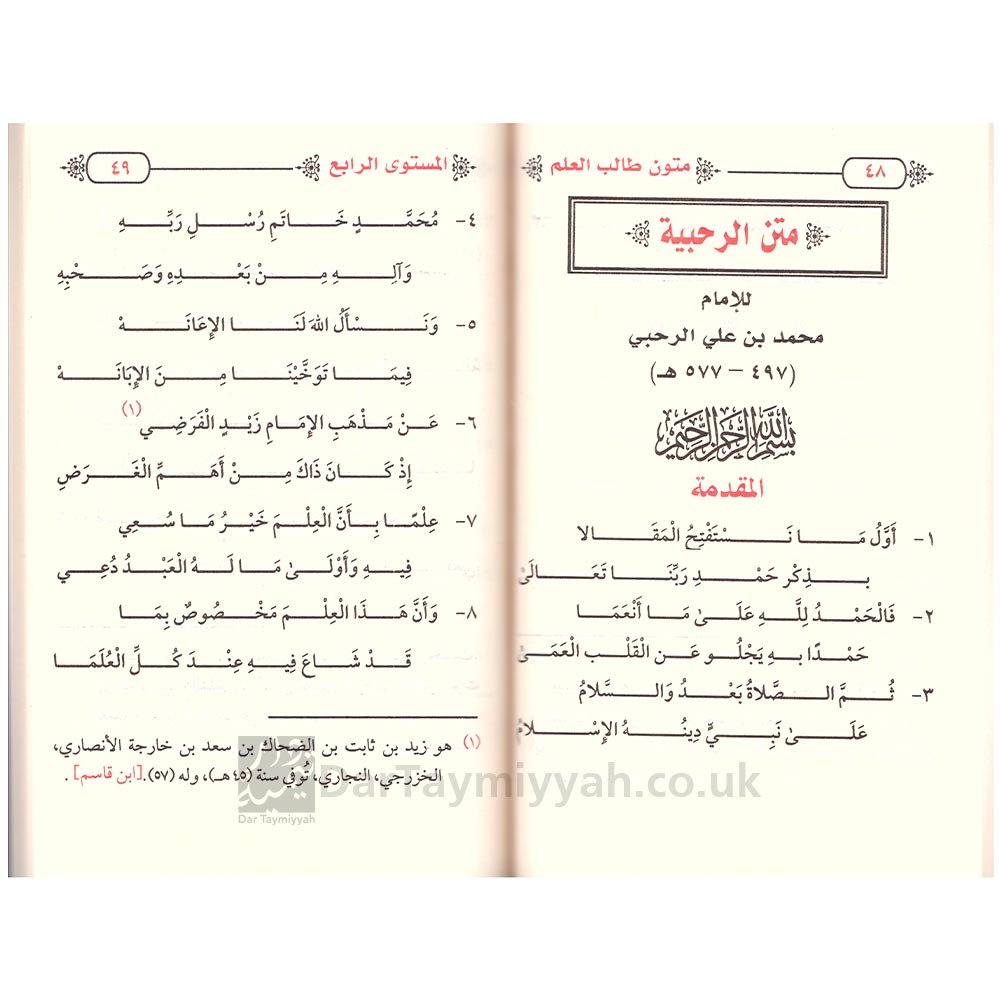 ٤٨
متون طالب العلم
متن الرحبية
للإمام
محمد بن علي الرحبي
(٤٩٧ – ٥٧٧ هـ)
بسم الله الرحمن الرحيم
المقدمة
١- أَوَّلُ مَا نَسْتَفْتِحُ الْمَقَالا
بِذِكْرِ حَمْدِ رَبِّنَا تَعَالَىٰ
٢- فَالْحَمْدُ لِلَّهِ عَلَىٰ مَا أَنْعَمَا
حَمْدًا بِهِ يَجْلُو عَنِ الْقَلْبِ الْعَمَىٰ
٣- ثُمَّ الصَّلاةُ بَعْدُ وَالسَّلامُ
عَلَىٰ نَبِيٍّ دِينُهُ الإِسْلامُ
المستوى الرابع
٤٩
٤- مُحَمَّدٍ خَاتَمِ رُسْلِ رَبِّهِ
وَآلِهِ مِنْ بَعْدِهِ وَصَحْبِهِ
٥- وَنَسْأَلُ اللهَ لَنَا الإِعَانَهْ
فِيمَا تَوَخَّيْنَا مِنَ الإِبَانَهْ
٦- عَنْ مَذْهَبِ الإِمَامِ زَيْدِ الْفَرَضِي (١)
إِذْ كَانَ ذَاكَ مِنْ أَهَمِّ الْغَرَضِ
٧- عِلْمًا بِأَنَّ الْعِلْمَ خَيْرُ مَا سُعِي
فِيهِ وَأَوْلَىٰ مَا لَهُ الْعَبْدُ دُعِي
٨- وَأَنَّ هَذَا الْعِلْمَ مَخْصُوصٌ بِمَا
قَدْ شَاعَ فِيهِ عِنْدَ كُلِّ الْعُلَمَا
(١) هو زيد بن ثابت بن الضحاك بن سعد بن خارجة الأنصاري،
الخزرجي، النجاري، تُوفي سنة (٤٥ هـ)، وله (٥٧). [ابن قاسم].
DarTaymiyyah.co.uk
Dar Taymiyyah